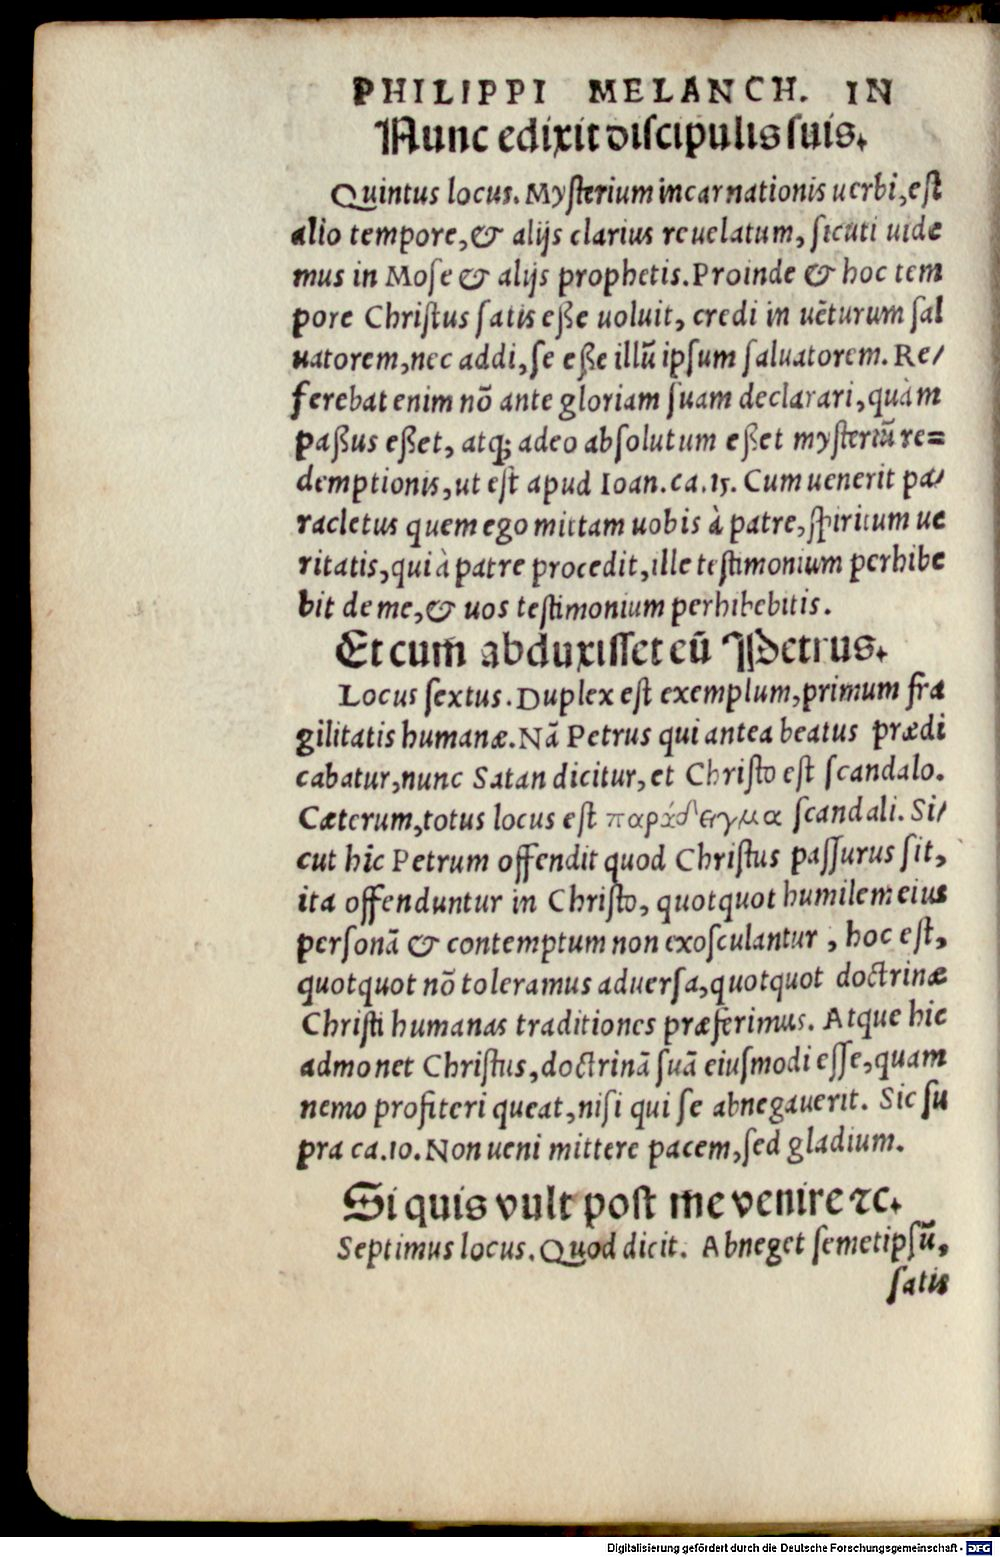 PHILIPPI MELANCH. IN
Nunc edixit discipulis suis.
Quintus locus. Mysterium incarnationis uerbi, est
alio tempore, & alijs clarius reuelatum, sicuti uide
mus in Mose & alijs prophetis. Proinde & hoc tem
pore Christus satis eße uoluit, credi in uẽturum sal
uatorem, nec addi, se eße illũ ipsum saluatorem. Re/
ferebat enim nõ ante gloriam suam declarari, quàm
paßus eßet, atq; adeo absolutum eßet mysteriũ re=
demptionis, ut est apud Ioan. ca. 15. Cum uenerit pa/
racletus quem ego mittam uobis à patre, spiritum ue
ritatis, qui à patre procedit, ille testimonium perhibe
bit de me, & uos testimonium perhibebitis.
Et cum abduxisset eũ Petrus.
Locus sextus. Duplex est exemplum, primum fra
gilitatis humanæ. Nã Petrus qui antea beatus prædi
cabatur, nunc Satan dicitur, et Christo est scandalo.
Cæterum, totus locus est παράδειγμα scandali. Si/
cut hic Petrum offendit quod Christus passurus sit,
ita offenduntur in Christo, quotquot humilem eius
personã & contemptum non exosculantur, hoc est,
quotquot nõ toleramus aduersa, quotquot doctrinæ
Christi humanas traditiones præferimus. Atque hic
admonet Christus, doctrinã suã eiusmodi esse, quam
nemo profiteri queat, nisi qui se abnegauerit. Sic su
pra ca. 10. Non ueni mittere pacem, sed gladium.
Si quis vult post me venire ⁊c.
Septimus locus. Quod dicit. Abneget semetipsũ,
satis
Digitalisierung gefördert durch die Deutsche Forschungsgemeinschaft - DFG